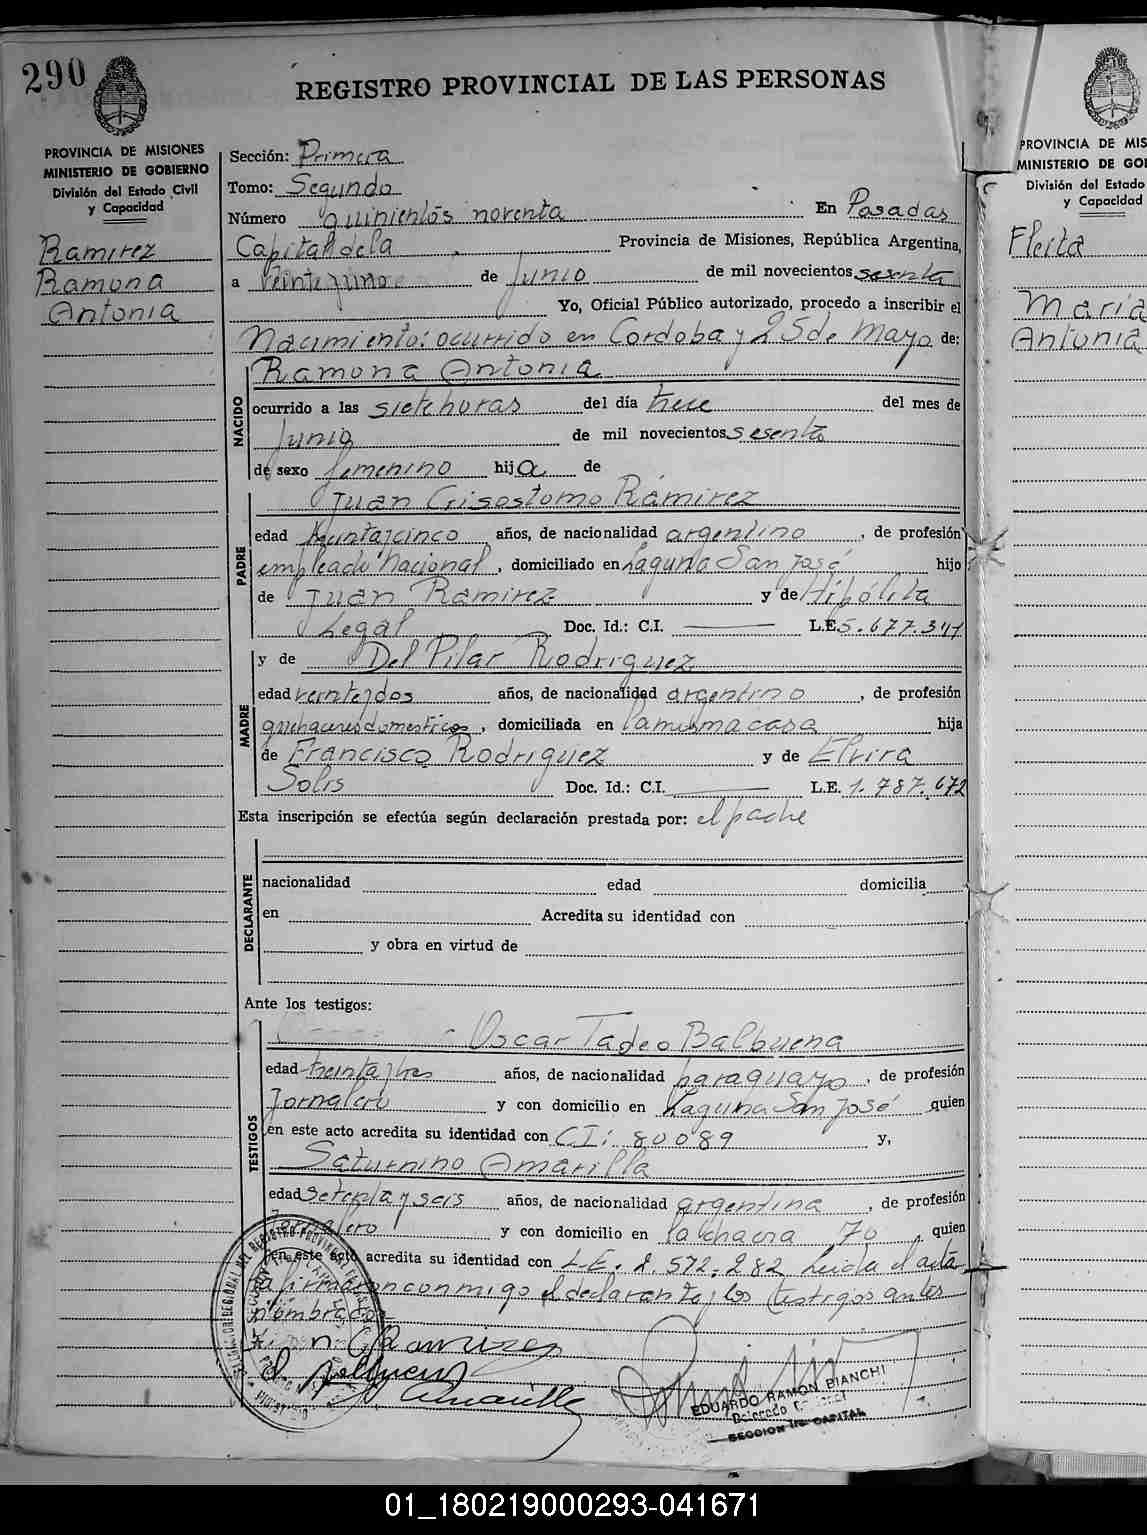 290
REGISTRO PROVINCIAL DE LAS PERSONAS
PROVINCIA DE MISIONES
MINISTERIO DE GOBIERNO
División del Estado Civil
y Capacidad
Ramirez
Ramona
Antonia
Sección: Primera
Tomo: Segundo
Número quinientos noventa En Posadas
Capital de la Provincia de Misiones, República Argentina,
a veintiuno de Junio de mil novecientos sesenta
Yo, Oficial Público autorizado, procedo a inscribir el
Nacimiento: ocurrido en Cordoba y 25 de Mayo de:
NACIDO
Ramona Antonia
ocurrido a las siete horas del día trece del mes de
Junio de mil novecientos sesenta
de sexo femenino hija de
PADRE
Juan Crisostomo Ramirez
edad treintaicinco años, de nacionalidad argentino, de profesión
empleado Nacional, domiciliado en Laguna San José hijo
de Juan Ramirez y de Hipólita
Legal Doc. Id.: C.I. L.E. 5.677.341
y de Del Pilar Rodriguez
MADRE
edad veinteidos años, de nacionalidad argentino, de profesión
quehaceres domesticos, domiciliada en la misma casa hija
de Francisco Rodriguez y de Elvira
Solis Doc. Id.: C.I. L.E. 1.787.672
Esta inscripción se efectúa según declaración prestada por: el padre
DECLARANTE
nacionalidad edad domicilia
en Acredita su identidad con
y obra en virtud de
Ante los testigos:
TESTIGOS
Oscar Tadeo Balbuena
edad treintaitres años, de nacionalidad paraguayo, de profesión
Jornalero y con domicilio en Laguna San José quien
en este acto acredita su identidad con CI: 80089 y,
Saturnino Amarilla
edad setenta y seis años, de nacionalidad argentina, de profesión
Jornalero y con domicilio en la chacra 70, quien
en este acto acredita su identidad con L.E. 2.572.282 Leida el acta
la firmaron conmigo el declarante y los testigos antes
nombrados
Ramirez
Balbuena
Amarilla
EDUARDO RAMON BIANCHI
SECCION 1ra. CAPITAL
PROVINCIA DE MIS
MINISTERIO DE GOB
División del Estado
y Capacidad
Fleita
Maria
Antonia
01_180219000293-041671